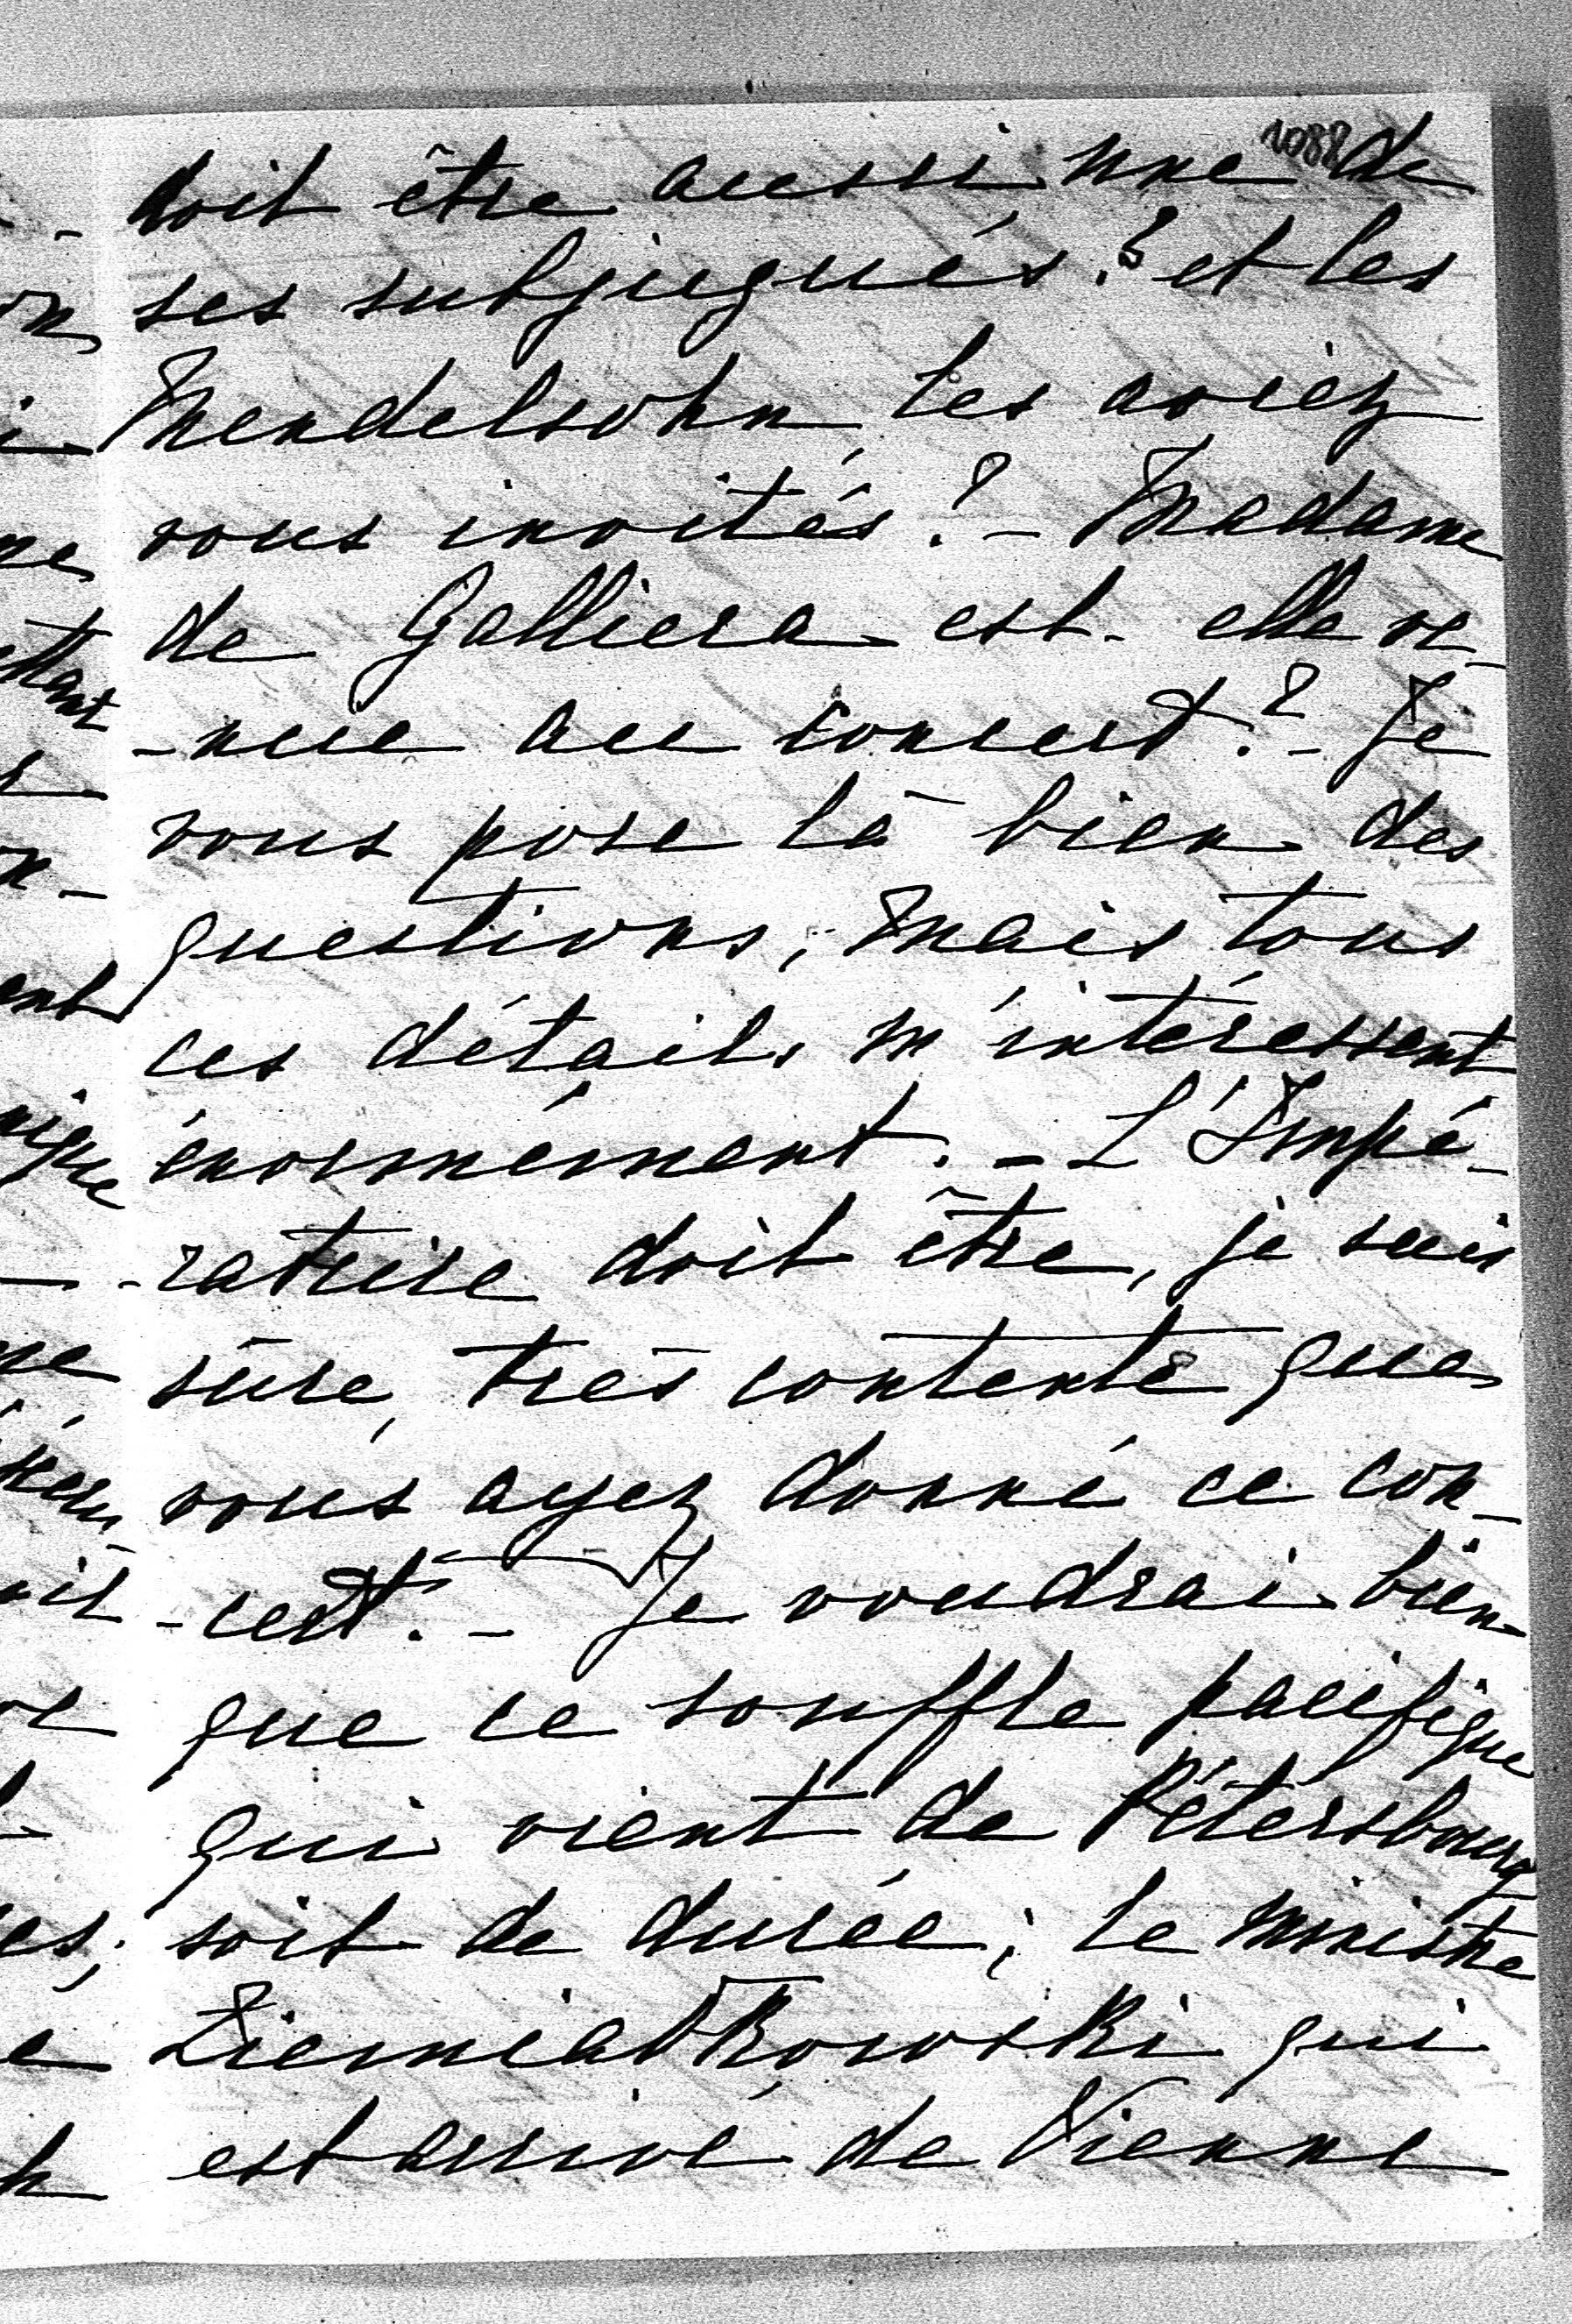 1088
doit être aussi une de
ses subjugués? et les
Mendelsohn, les aviez
vous invités? - Madame
de Galliera est-elle ve-
-nue au concert? - Je
vous pose là bien des
questions; mais tous
ces détails m'intéressent
énormément. - L'Impé-
-ratrice doit être, je suis
sûre, très contente que
vous ayez donné ce con-
-cert. - Je voudrai bien
que ce souffle pacifique
qui vient de Pétersbourg
soit de durée; le ministre
Ziemialkowski qui
est arrivé de Vienne